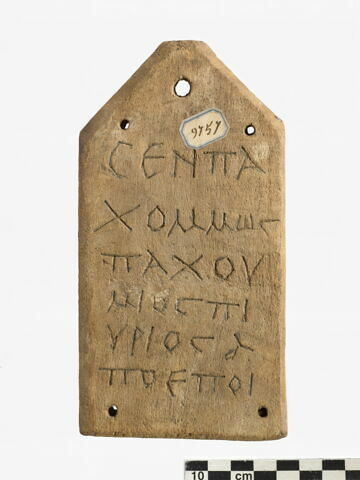 9757
ϹΕΝΠΑ
ΧΟΜΜωϹ
ΠΑΧΟΥ
ΜΙΟϹΠΙ
ΥΡΙΟϹΑ
ΠΟΕΠΟΙ
10 cm